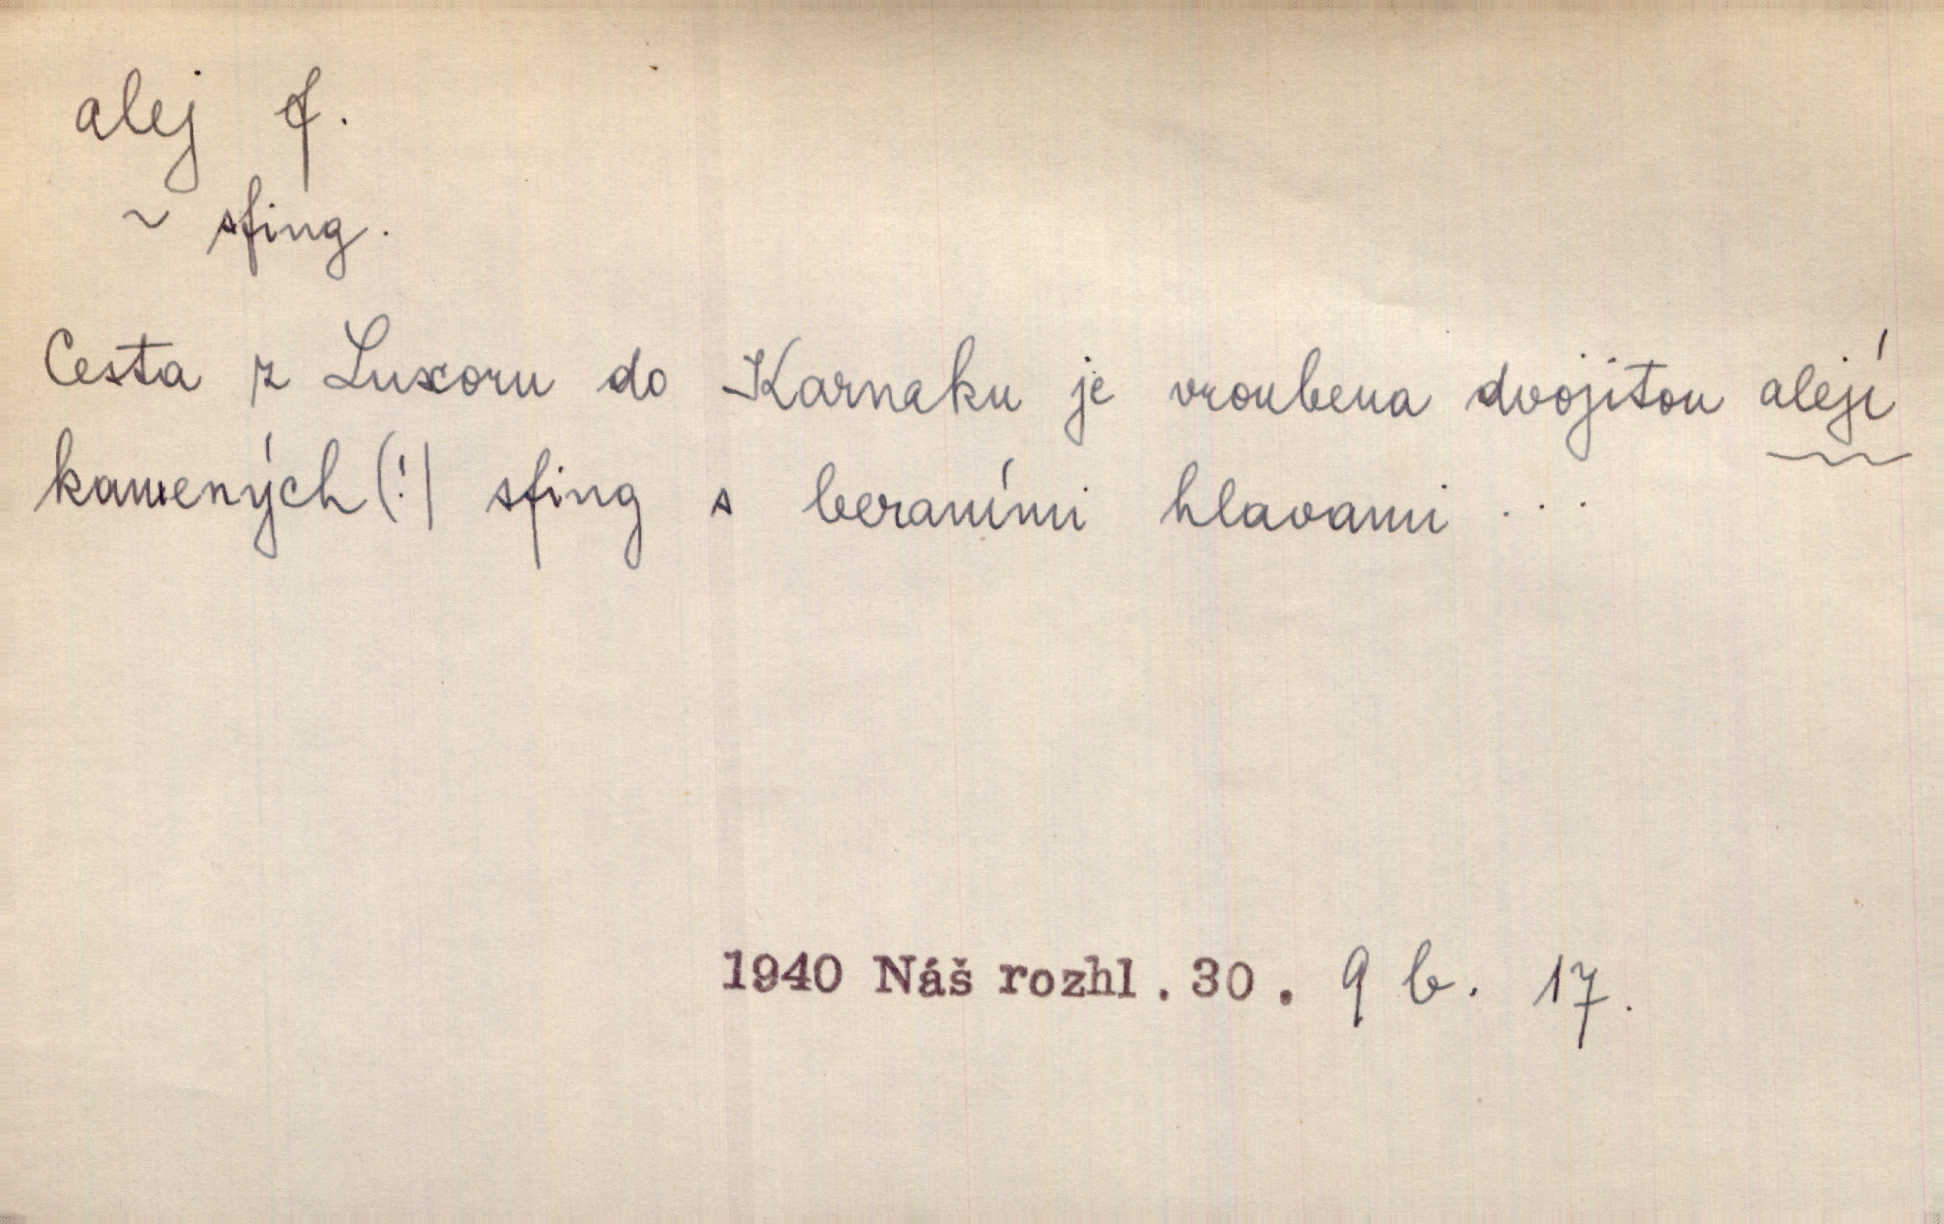 alej f.
~ sfing.
Cesta z Luxoru do Karnaku je vroubena dvojitou alejí
kamených (!) sfing s beraními hlavami ...
1940 Náš rozhl. 30. 9 b. 17.